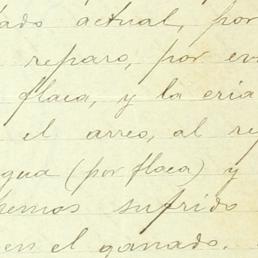 ado actual, por
reparo, por ev
flaca, y la cria
el arreo, al re
gua (por flaca) y
hemos sufrido
en el ganado.